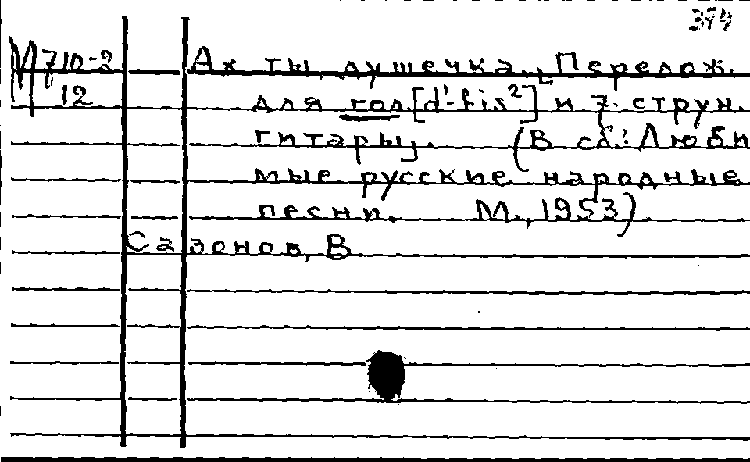 374
М 710-2
12
Ах ты, душечка. [Перелож.
для гол. [d'-fis²] и 7-струн.
гитары]. (В сб.: Люби
мые русские народные
песни. М., 1953)
Сазонов, В.